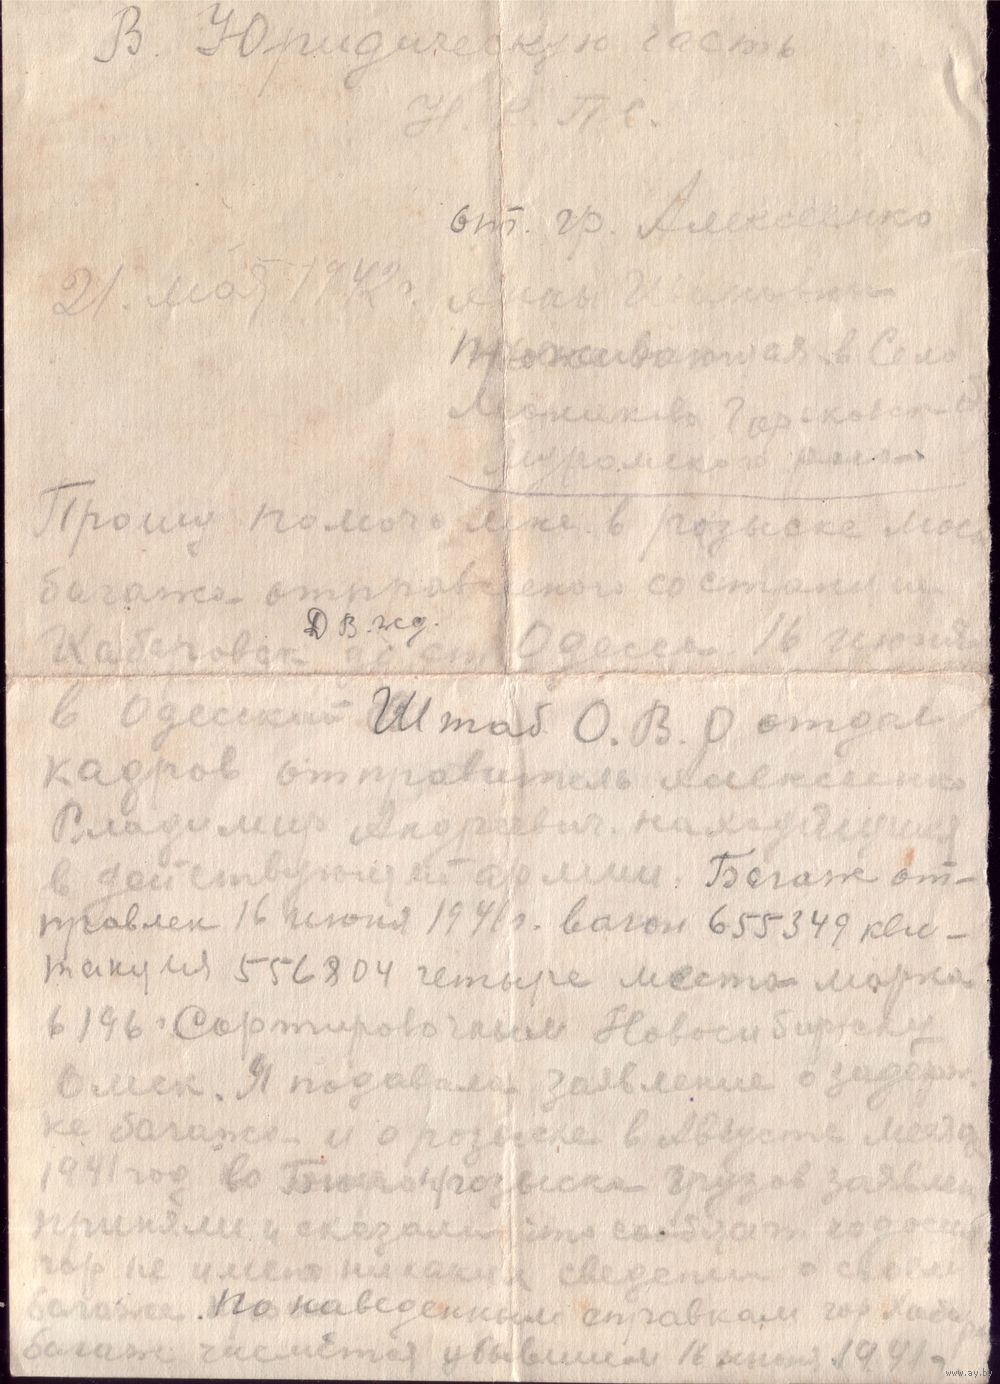 В. Юридическую часть
Н. К. П. С.
от. гр. Алексеенко
21. мая 1942 г.
Анны
Проживающая в Село
Горьковской об
Муромского
Прошу помочь мне. в розыске моего
багажа отправленого со станции
Хабаровск ДВ.жд. до ст Одесса 16 июня
в Одесский Штаб О. В. О отдел
кадров отправитель Алексеенко
Владимир Андреевич. находящийся
в действующей армии. Багаж от-
правлен 16 июня 1941 г. вагон 655349 кви-
танция 556804 четыре места марка
6196. Сортировочным Новосибирску
Омск. Я подавала заявление о задерж-
ке багажа и о розыске в Августе месяц
1941 год во Бюро розыска грузов заявлен
приняли и сказали что сообщат но до сих
пор не имею никаких сведений о своем
багаже. По наведенным справкам гор Хабар
багаж числится убывшим 16 июня 1941 г
www.ay.by